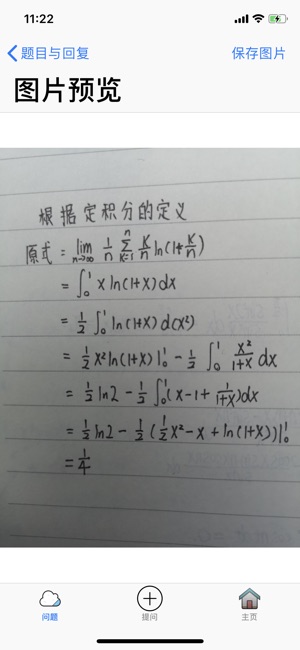 11:22
题目与回复 保存图片
图片预览
根据定积分的定义
原式 = lim n→∞ 1/n Σ K=1 n K/n ln(1+K/n)
= ∫₀¹ x ln(1+x)dx
= 1/2 ∫₀¹ ln(1+x) d(x²)
= 1/2 x² ln(1+x)|₀¹ - 1/2 ∫₀¹ x²/1+x dx
= 1/2 ln2 - 1/2 ∫₀¹(x-1+1/1+x)dx
= 1/2 ln2 - 1/2 (1/2 x² - x + ln(1+x))|₀¹
= 1/4
问题 提问 主页